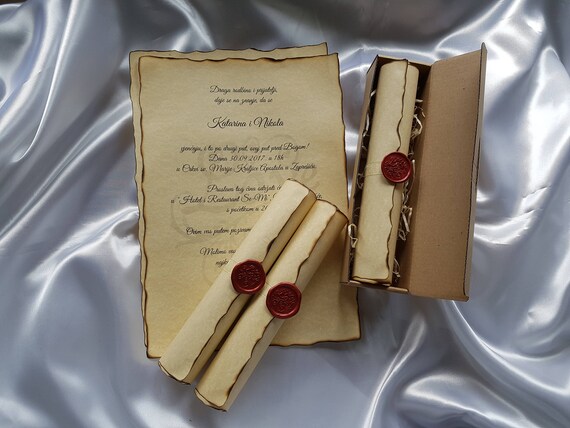 Draga rodbino i prijatelji,
daje se na znanje, da se
Katarina i Nikola
vjenčaju, i to po drugi put, ovaj put pred Bogom!
Dana 30.09.2017. u 18h
u Crkvi sv. Marije Kraljice Apostola u Zaprešiću
Proslava tog čina održati će
u "Hotel i Restaurant
s početkom u
Ovim vas putem
Molimo